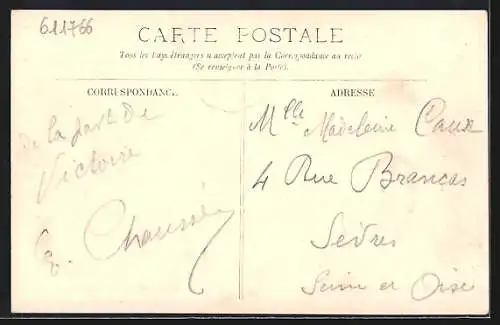 611766
CARTE POSTALE
Tous les pays étrangers n'acceptent pas la Correspondance au recto
(Se renseigner à la Poste).
CORRESPONDANCE
de la part de
Victoire
E. Chaussée
ADRESSE
Mlle Madeleine Caux
4 Rue Brancas
Sèvres
Seine et Oise